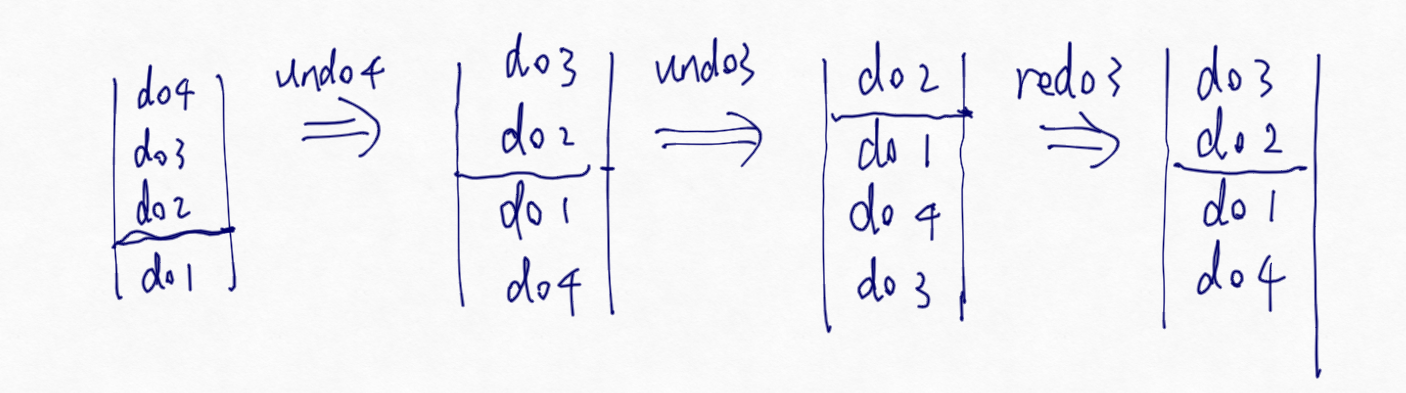 do4
do3
do2
do1
undo4
do3
do2
do1
do4
undo3
do2
do1
do4
do3
redo3
do3
do2
do1
do4